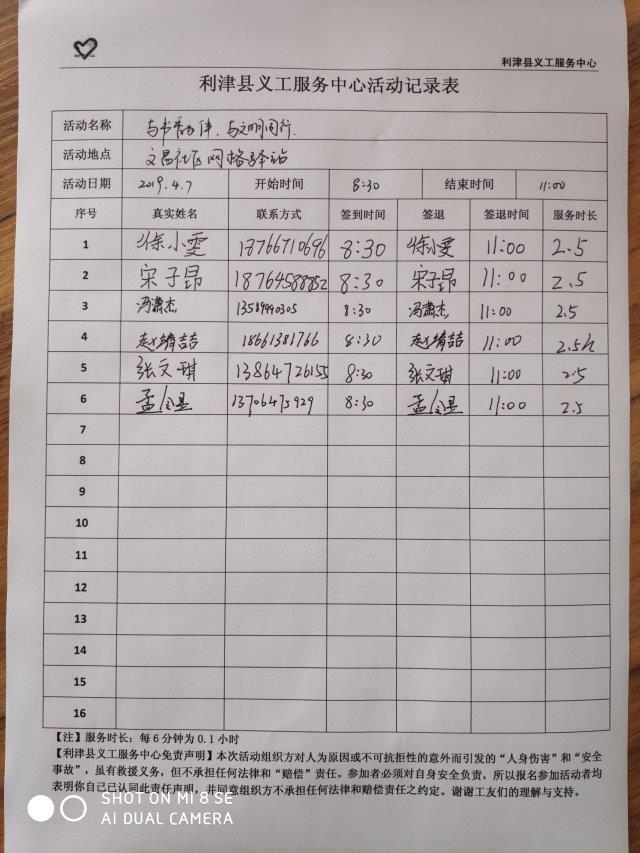 利津县义工服务中心
利津县义工服务中心活动记录表
活动名称 与书香为伴、与文明同行.
活动地点 文昌社区网格驿站
活动日期 2019.4.7 开始时间 8:30 结束时间 11:00
序号 真实姓名 联系方式 签到时间 签退 签退时间 服务时长
1 徐小雯 18766710696 8:30 徐小雯 11:00 2.5
2 宋子昂 18764588852 8:30 宋子昂 11:00 2.5
3 冯潇杰 13589990305 8:30 冯潇杰 11:00 2.5
4 赵婧喆 18661381766 8:30 赵婧喆 11:00 2.5h
5 张文琪 13864726155 8:30 张文琪 11:00 2.5
6 孟令 13706475929 8:30 孟令 11:00 2.5
7
8
9
10
11
12
13
14
15
16
【注】服务时长：每 6 分钟为 0.1 小时
【利津县义工服务中心免责声明】本次活动组织方对人为原因或不可抗拒性的意外而引发的“人身伤害”和“安全
事故”，虽有救援义务，但不承担任何法律和“赔偿”责任。参加者必须对自身安全负责，所以报名参加活动者均
表明你自己已认同此责任声明，并同意组织方不承担任何法律和赔偿责任之约定。谢谢工友们的理解与支持。
SHOT ON MI 8 SE
AI DUAL CAMERA